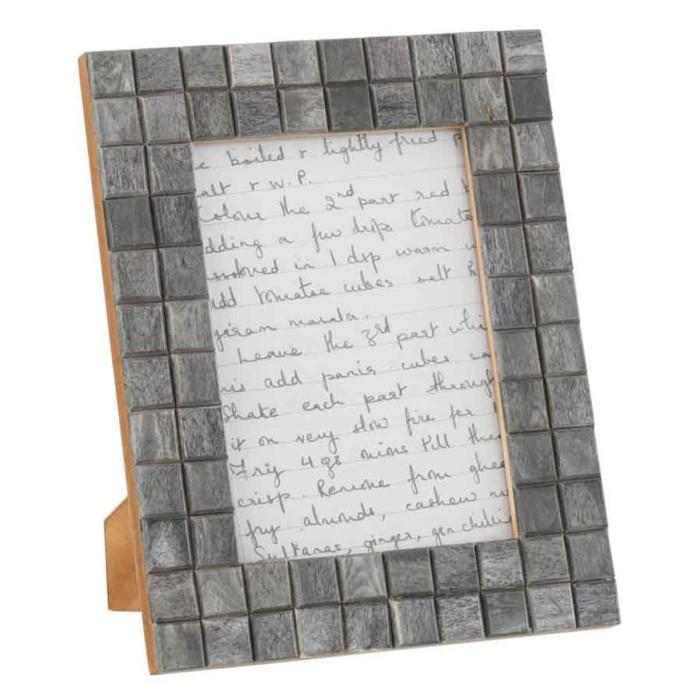 e boiled & lightly fried p
alt & W.P.
Colour the 2nd part red
dding a few drps tomato
ssolved in 1 dsp warm w
dd tomatoe cubes salt R
garam masala.
Leave the 3rd part whi
his add panir cubes sa
Shake each part through
it on very slow fire for 1
Frig 4 qs onions till they
crisp. Remove from ghee
fry almonds, cashew nu
Sultanas, ginger, grn chilli